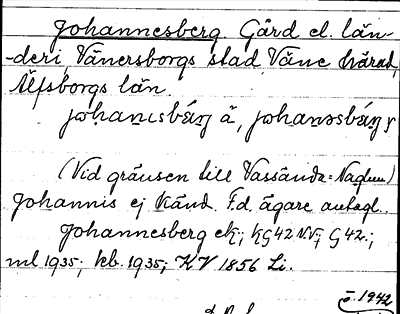 Johannesberg. Gård el. län-
-deri, Vänersborgs stad, Väne härad,
Älfsborgs län.
(Vid gränsen till Vassända-Naglum)
Johannis ej känd. F.d. ägare antagl.
Johannesberg ek; KG 42 N.V; G 42.;
ml 1935; kb. 1935; KV 1856 Li.
1942